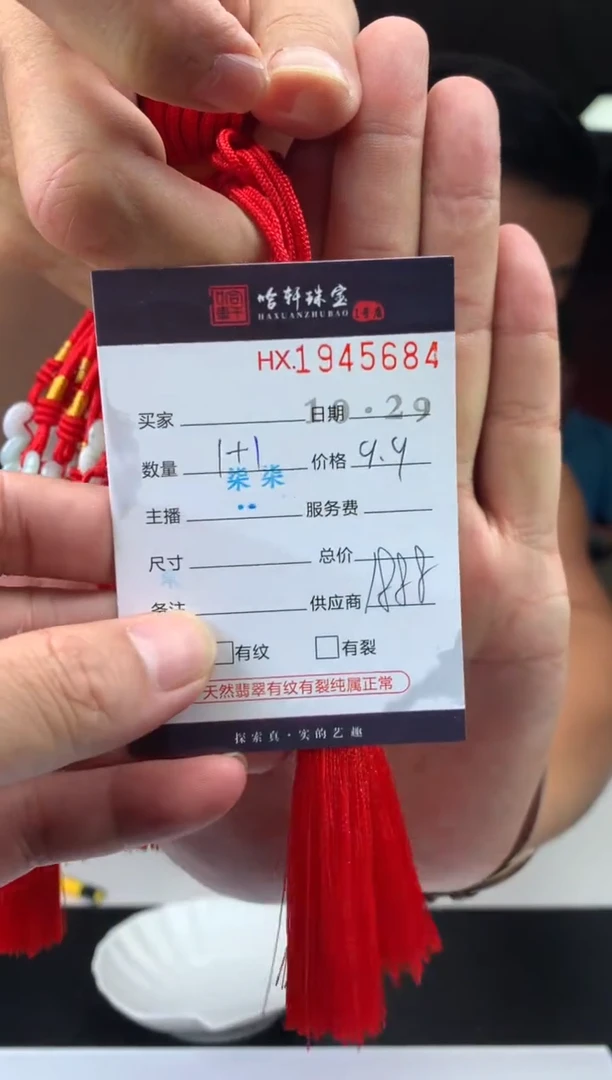 哈轩珠宝
HAXUANZHUBAO
HX.1945684
买家 日期 10.29
数量 1+1 价格 9.9
柒 柒
主播 服务费
尺寸 总价
备注 供应商 1888
有纹 有裂
天然翡翠有纹有裂纯属正常
探索真·实的艺趣